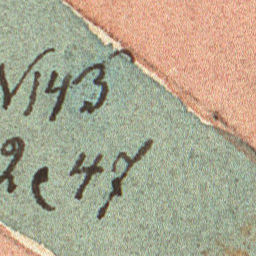 N143
2e 47